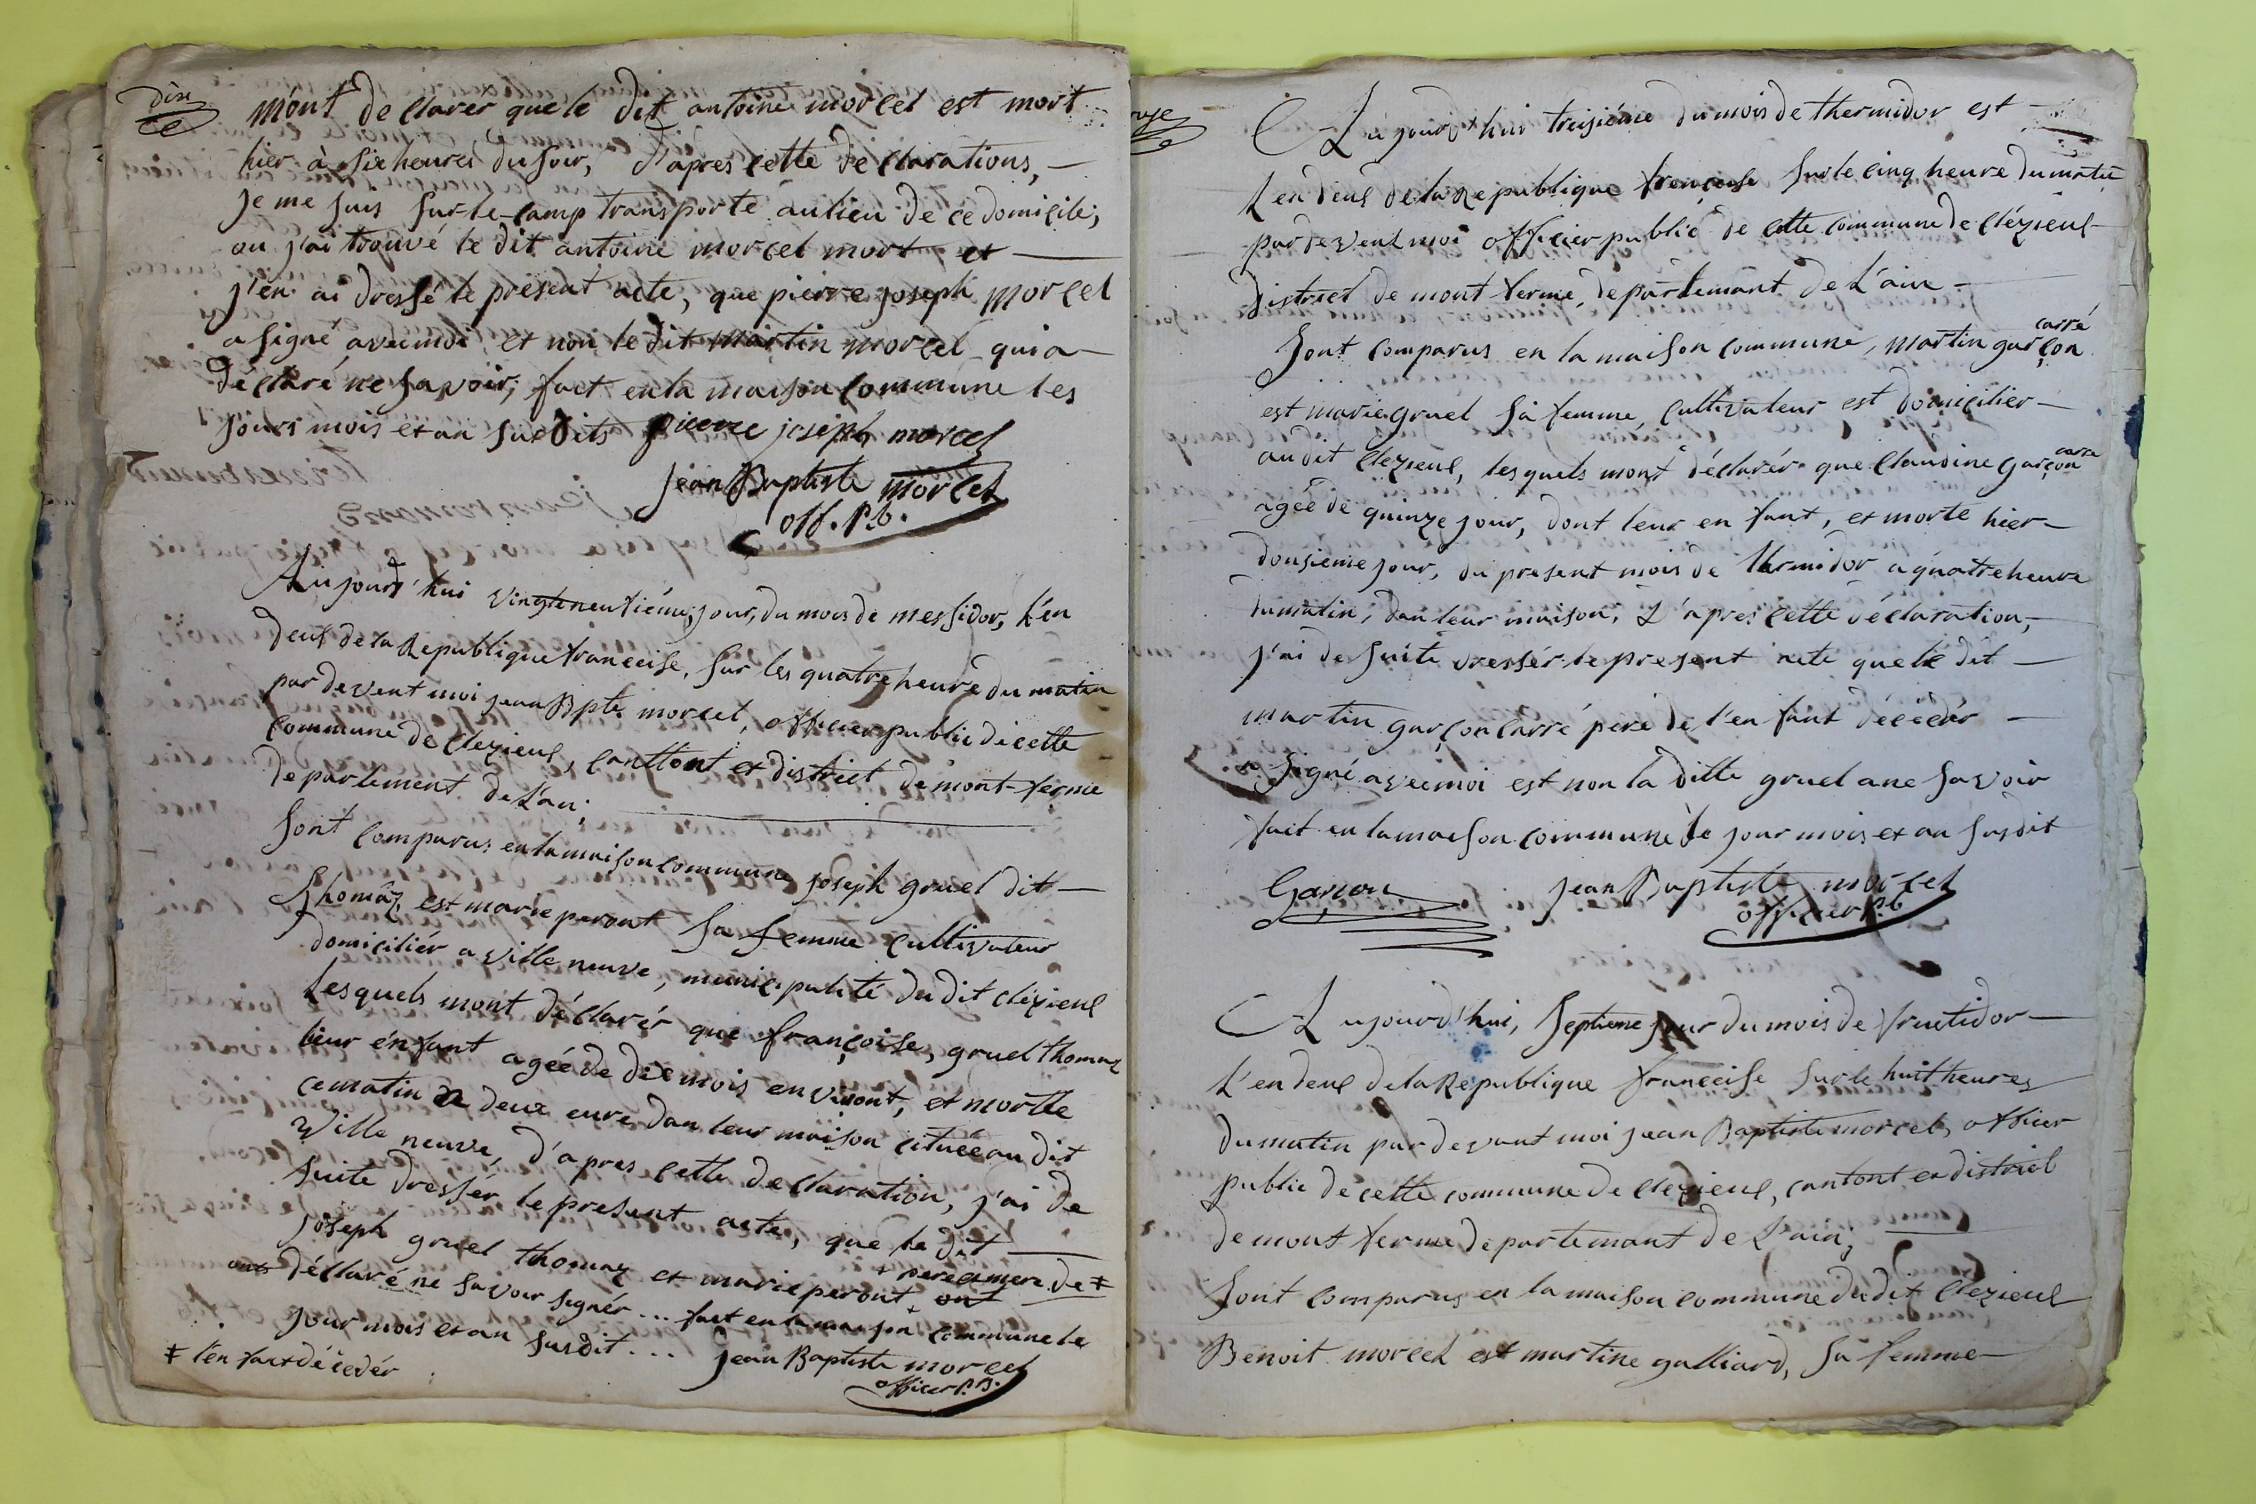 dix
mont declarer que le dit antoine morcel est mort
hier à sixheures du soir, d'apres cette declarations,
je me suis sur-le-camp transporté au lieu de ce domicile,
ou j'ai trouvé le dit antoine morcel mort et
j'en ai dressé le présent acte, que pierre joseph morcel
a signé avec moi et non le dit martin morcel qui a
déclaré ne savoir, fait en la maison commune les
jours mois et an susdits pierre joseph morcel
jean Baptiste morcel
off. Pb.
Aujourd'hui vingteneufiéme, jour, du mois de messidor, L'en
deus de la Republique franceise, sur les quatre heure du matin
par devent moi jean Bpte morcel, officier public de cette
commune de clezieus, canttont et district de mont-ferme
departement de L'ain;
sont comparus en la maison commune joseph gruel dit
thomaz est marie peront sa femme cultivateur
domiciliér a ville neuve, municipalité du dit clézieus
Lesquels mont déclarér que françoise, gruel thomaz
leur énfant agée de dix mois environt, et mortte
ce matin a deux eure dan leur maison cituée au dit
Ville neuve, d'apres cette declaration, j'ai de
suite dressér le present acte, que le dit
joseph gruel thomaz et marie peront + pere et mere de ‡ ont
ont déclaré ne savoir signér ... fait en la maison commune le
jour mois et an susdit ... jean Baptiste morcel
officer P.B.
‡ l'enfant décedér
Aujourd'hui treisiéme du mois de thermidor est
L'en deus de la Republique françoise sur le cinq heure du matin
par devent moi officier public de cette commune de clézieus
district de mont ferme, departemant de L'ain
sont comparus en la maison commune, martin garçon carré
est marie gruel sa femme, cultivateur est domicilier
au dit clezieus, lesquels mont déclarér que claudine garçon carré
agée de quinze jour, dont leur enfant, et morte hier
dousieme jour, du present mois de thermidor a quatre heure
du matin, dan leur maison, d'apres cette déclaration,
j'ai de suite dressér le present acte que le dit
martin garçon carré pere de l'enfant décédér
a signé avec moi est non la ditte gruel a ne savoir
fait en la maeson commune le jour mois et an susdit
Garçon jean Baptiste morcel
officier Pb
Aujourd'hui, septieme jour du mois de fructidor
L'en deus de la Republique franceise sur le huit heures
du matin par devant moi jean Baptiste morcel, officer
public de cette commune de clezieus, cantont et district
de mont ferme departemant de L'ain;
sont comparus en la maison commune du dit clezieus
Benoit morcel est martine galliard, sa femme